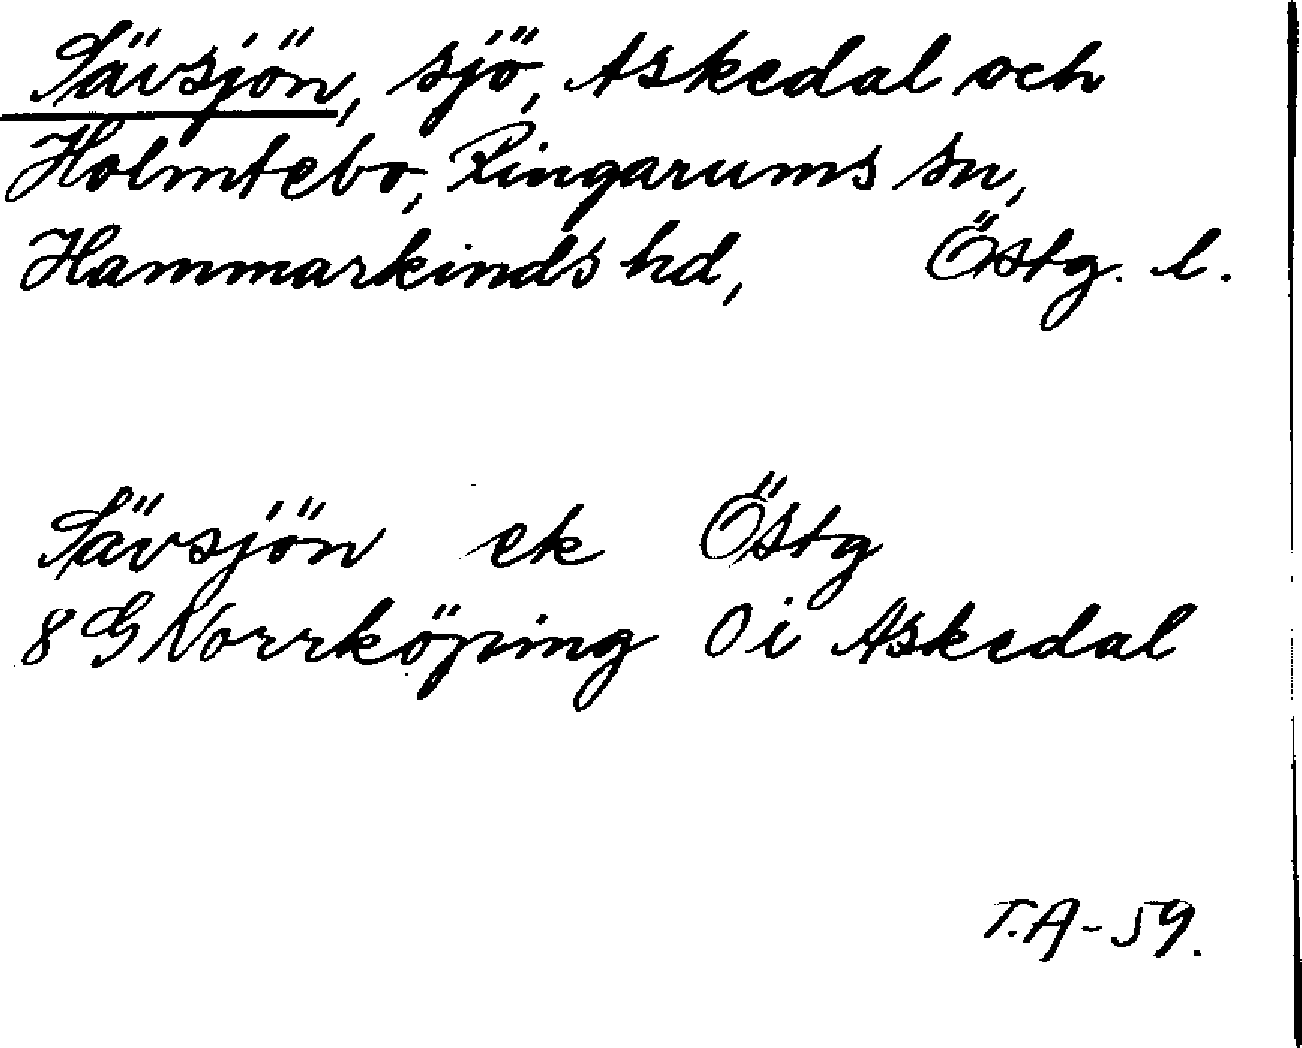 Sävsjön, sjö, Askedal och
Holmtebo, Ringarums sn,
Hammarkinds hd, Östg. l.
Sävsjön ek Östg
8 G Norrköping O i Askedal
T.A-59.